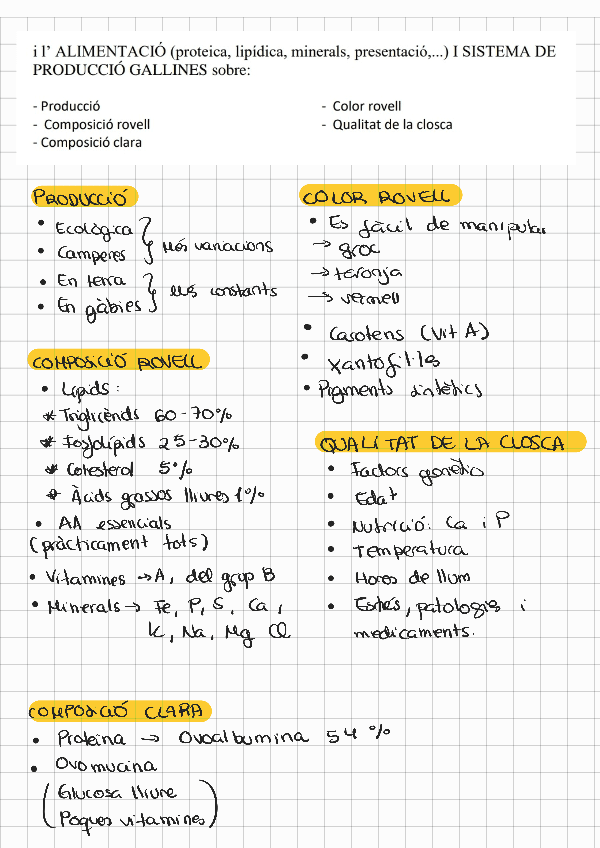 i l' ALIMENTACIÓ (proteica, lipídica, minerals, presentació,...) I SISTEMA DE
PRODUCCIÓ GALLINES sobre:
- Producció
- Composició rovell
- Composició clara
- Color rovell
- Qualitat de la closca
PRODUCCIÓ
• Ecològica
• Camperes } Més variacions
• En terra
• En gàbies } més constants
COMPOSICIÓ ROVELL
• Lípids:
* Triglicèrids 60-70%
* Fosfolípids 25-30%
* Colesterol 5%
* Àcids grassos lliures 1%
• AA essencials
(pràcticament tots)
• Vitamines → A, del grup B
• Minerals → Fe, P, S, Ca,
K, Na, Mg Cl
COLOR ROVELL
• Es fàcil de manipular
→ groc
→ taronja
→ vermell
• Carotens (Vit A)
• Xantofil·les
• Pigments sintètics
QUALITAT DE LA CLOSCA
• Factors genètics
• Edat
• Nutrició: Ca i P
• Temperatura
• Hores de llum
• Estrés, patologies i
medicaments.
COMPOSICIÓ CLARA
• Proteïna → Ovoalbumina 54 %
• Ovomucina
(Glucosa lliure
Poques vitamines)